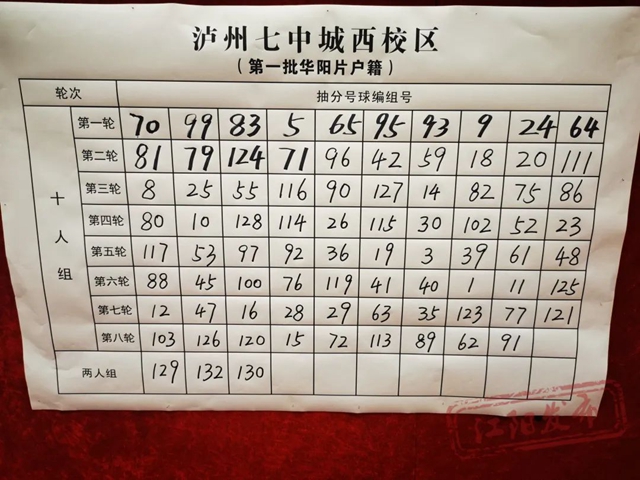 泸州七中城西校区
（第一批华阳片户籍）
轮次 抽分号球编组号
十人组
第一轮 70 99 83 5 65 95 93 9 24 64
第二轮 81 79 124 71 96 42 59 18 20 111
第三轮 8 25 55 116 90 127 14 82 75 86
第四轮 80 10 128 114 26 115 30 102 52 23
第五轮 117 53 97 92 36 19 3 39 61 48
第六轮 88 45 100 76 119 41 40 1 11 125
第七轮 12 47 16 28 29 63 35 123 77 121
第八轮 103 126 120 15 72 113 89 62 91
两人组 129 132 130
江阳发布